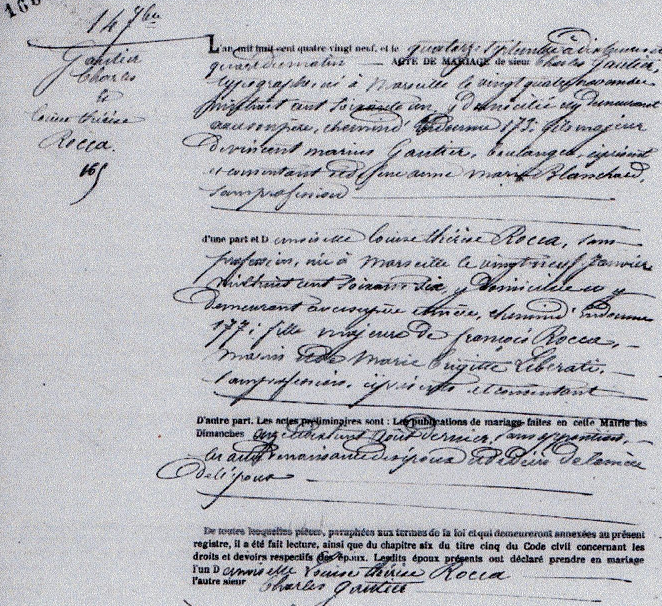 14 7bre
Gautier
Charles
et
Louise Thérèse
Rocca.
165
L'an mil huit cent quatre vingt neuf, et le quatorze Septembre à dix heures
du matin ACTE DE MARIAGE de sieur Charles Gautier,
typographe, né à Marseille le vingt quatre
mil huit cent soixante un, y domicilié et y demeurant
avec son père, chemin d'Endoume 173. fils majeur
de vincent marius Gautier, boulanger, ici présent
et consentant et de anne Marie Blanchard,
sans profession
d'une part et Demoiselle Louise Thérèse Rocca, sans
profession, née à Marseille le vingt neuf Janvier
mil huit cent soixante six, y domiciliée et y
demeurant avec ses père et mère, chemin d'Endoume
177: fille majeure de françois Rocca,
marin et de Marie Brigitte Liberati,
sans profession, ici présents et consentant
D'autre part. Les actes préliminaires sont : Les publications de mariage faites en cette Mairie les
Dimanches onze et août dernier, sans opposition,
les actes de naissance des époux et de décès de la mère
de l'époux
De toutes lesquelles pièces, paraphées aux termes de la loi et qui demeureront annexées au présent
registre, il a été fait lecture, ainsi que du chapitre six du titre cinq du Code civil concernant les
droits et devoirs respectifs des époux. Lesdits époux présents ont déclaré prendre en mariage
l'un Demoiselle Louise Thérèse Rocca
l'autre sieur Charles Gautier